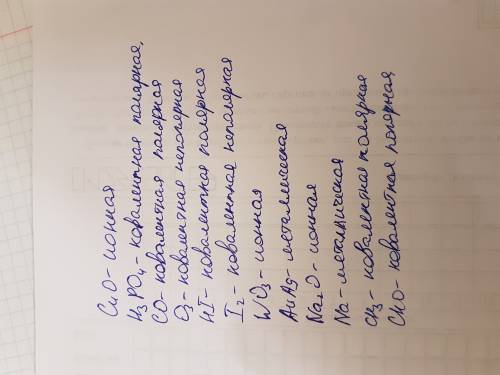 CuO - ионная
H₃PO₄ - ковалентная полярная,
CO - ковалентная полярная
O₃ - ковалентная неполярная
HI - ковалентная полярная
I₂ - ковалентная неполярная
WO₃ - ионная
AuAg - металлическая
Na₂O - ионная
Na - металлическая
CH₃ - ковалентная полярная
CHO - ковалентная полярная